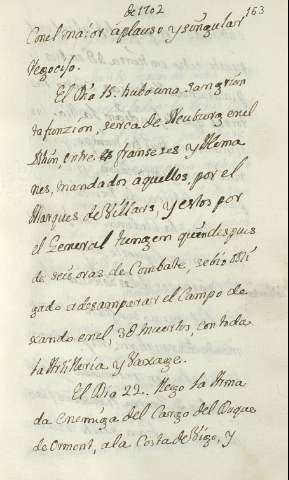 de 1702
163
Con el maior, aplauso, y singular
Regocijo.
El Dia 15. hubo una sangrien
ta funzion, serca de Neuburg en el
Rhin entre franseses y Alema
nes, mandados aquellos, por el
Marques de Villars, y estos por
el General Tungem quien despues
de seis oras de Combate, se bio obli
gado a desamparar el Campo de
xando en el, 3@ muertos, con toda
la Artilleria y vaxage.
El Dia 22. llego la Arma
da Enemiga del Cargo del Duque
de Ormont, a la Costa de Vigo, y